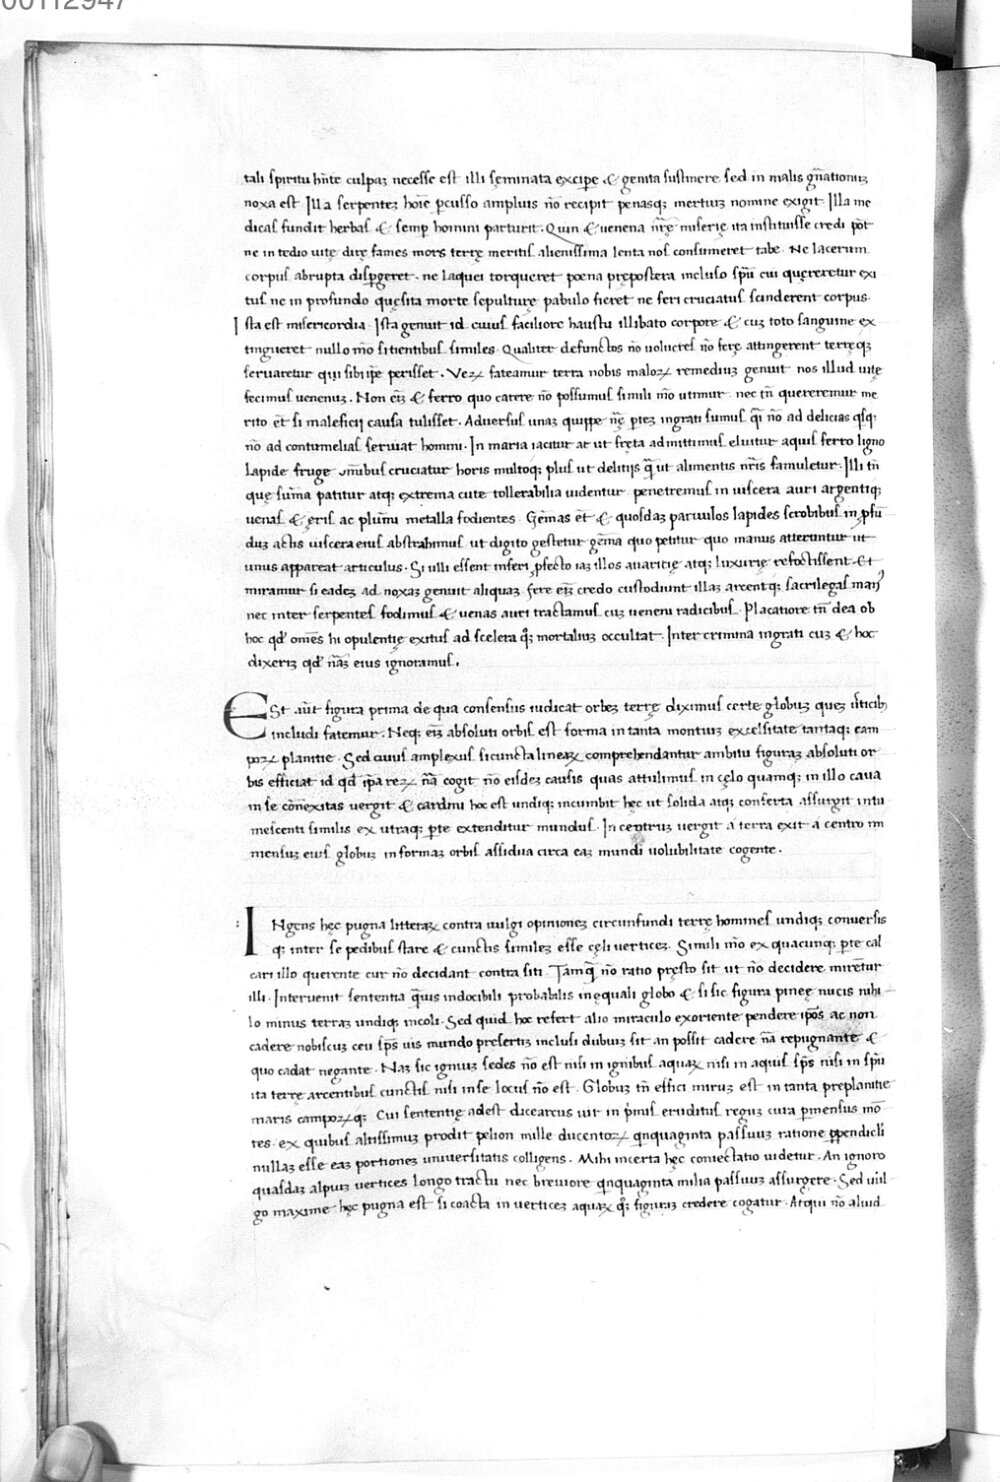 00112947
tali spiritu hñte culpaz necesse est illi seminata excipe & genita sustinere sed in malis gñationuz
noxa est Illa serpentez hoie pcusso ampluis nõ recipit penasq; mertiuz nomine exigit Illa me
dicas fundit herbas & semp homini parturit. Quin & uenena nrẽ miserię ita instituisse credi põt
ne in tedio uitę dirę fames mors terrę meritis alienissima lenta nos consumeret tabe. Ne lacerum
corpus abrupta dispgeret. ne laquei torqueret poena prępostera incluso spũ cui quęreretur exi
tus ne in profundo quęsita morte sepulturę pabulo fieret ne feri cruciatus scinderent corpus.
Ista est misericordia. Ista genuit id cuius faciliore haustu illibato corpore & cuz toto sanguine ex
tingueret nullo mõ sitientibus similes. Qualiter defunctos nõ uolucres nõ ferę attingerent terręq;
seruaretur qui sibi ipe perisset. Vezꝝ fateamur terra nobis malozꝝ remediuz genuit nos illud uitę
fecimus uenenuz. Non eñz & ferro quo carere nõ possumus simili mõ utimur. nec tñ quereremur me
rito et̃ si maleficij causa tulisset. Aduersus unaz quippe nę ptez ingrati sumus q̃i nõ ad delicias q̃sq;
nõ ad contumelias seruiat homini. In maria iacitur at ut fręta admittimus eluitur aquis ferro ligno
lapide fruge omĩbus cruciatur horis multoq; plus ut delitijs q̃ ut alimentis nrĩs famuletur. Illi tñ
quę sum̃a patitur atq; extrema cute tollerabilia uidentur. penetremus in uiscera auri argentiq;
uenas & ęris ac plum̃i metalla fodientes. Gem̃as et̃ & quosdaz paruulos lapides scrobibus in pfũ
duz actis uiscera eius abstrahimus ut digito gestetur gem̃a quo petitur quo manus atteruntur ut
unus appareat articulus. Si ulli essent inferi pfecto iaz illos auaritię atq; luxurię refodissent. Et
miramur si eadez ad noxaz genuit aliquaz. fere eñz credo custodiunt illaz arcentq; sacrilegas man9
nec inter serpentes fodimus & uenas auri tractamus cuz ueneni radicibus. Placatiore tñ dea ob
hoc qd' om̃es hi opulentię exitus ad scelera q̃; mortaliuz occultat. Inter crimina ingrati cuz & hoc
dixeriz qd' nãz eius ignoramus.
Est aũt figura prima de qua consensus iudicat orbez terrę diximus certe globuz quez ũticib
includi fatemur. Neq; eñz absoluti orbis est forma in tanta montiuz excelsitate tantaq; cam
pozꝝ planitie. Sed cuius amplexus si cuncta lineaꝝ comprehendantur ambitu figuraz absoluti or
bis efficiat id qd' ip̃a rezꝝ nãa cogit nõ eisdez causis quas attulimus in cęlo quamq; in illo caua
in se con̄exitas uergit & cardini hoc est undiq; incumbit hęc ut solida atq; conferta assurgit intu
mescenti similis ex utraq; pte extenditur mundus. In centruz uergit a terra exit a centro im
mensuz eius globuz in formaz orbis assidua circa eaz mundi uolubilitate cogente.
INgens hęc pugna litteraꝝ contra uulgi opinionez circunfundi terrę homines undiq; conuersis
q; inter se pedibus stare & cunctis similez esse cęli verticez. Simili mõ ex quacunq; pte cal
cari illo querente cur nõ decidant contra siti. Tamq̃ nõ ratio pręsto sit ut nõ decidere miren̄tur
illi. Interuenit sententia q̃uis indocibili probabilis inęquali globo & si sic figura pineę nucis nihi
lo minus terraz undiq; incoli. Sed quid hoc refert alio miraculo exoriente pendere ip̃os ac non
cadere nobiscuz ceu sp̃s uis mundo presertiz inclusi dubiuz sit an possit cadere nãa repugnante &
quo cadat negante. Naz sic ignius sedes nõ est nisi in ignibus aquaꝝ nisi in aquis sp̃s nisi in sp̃u
ita terrę arcentibus cunctis nisi in se locus nõ est. Globuz tñ effici miruz est in tanta preplanitie
maris campozꝝq; Cui sententię adest dicearcus uir in p̃mis eruditus reguz cura p̃mensus mõ
tes. ex quibus altissimuz prodit pelion mille ducentozꝝ q̃nquaginta passuuz ratione ppendicli
nullaz esse eaz portionez uniuersitatis colligens. Mihi incerta hęc coniectatio uidetur. An ignoro
quasdaz alpiuz vertices longo tractu nec breuiore q̃nquaginta milia passuuz assurgere. Sed uul
go maxime hęc pugna est si coacta in verticez aquaꝝ q̃; figuraz credere cogatur. Atqui nõ aliud